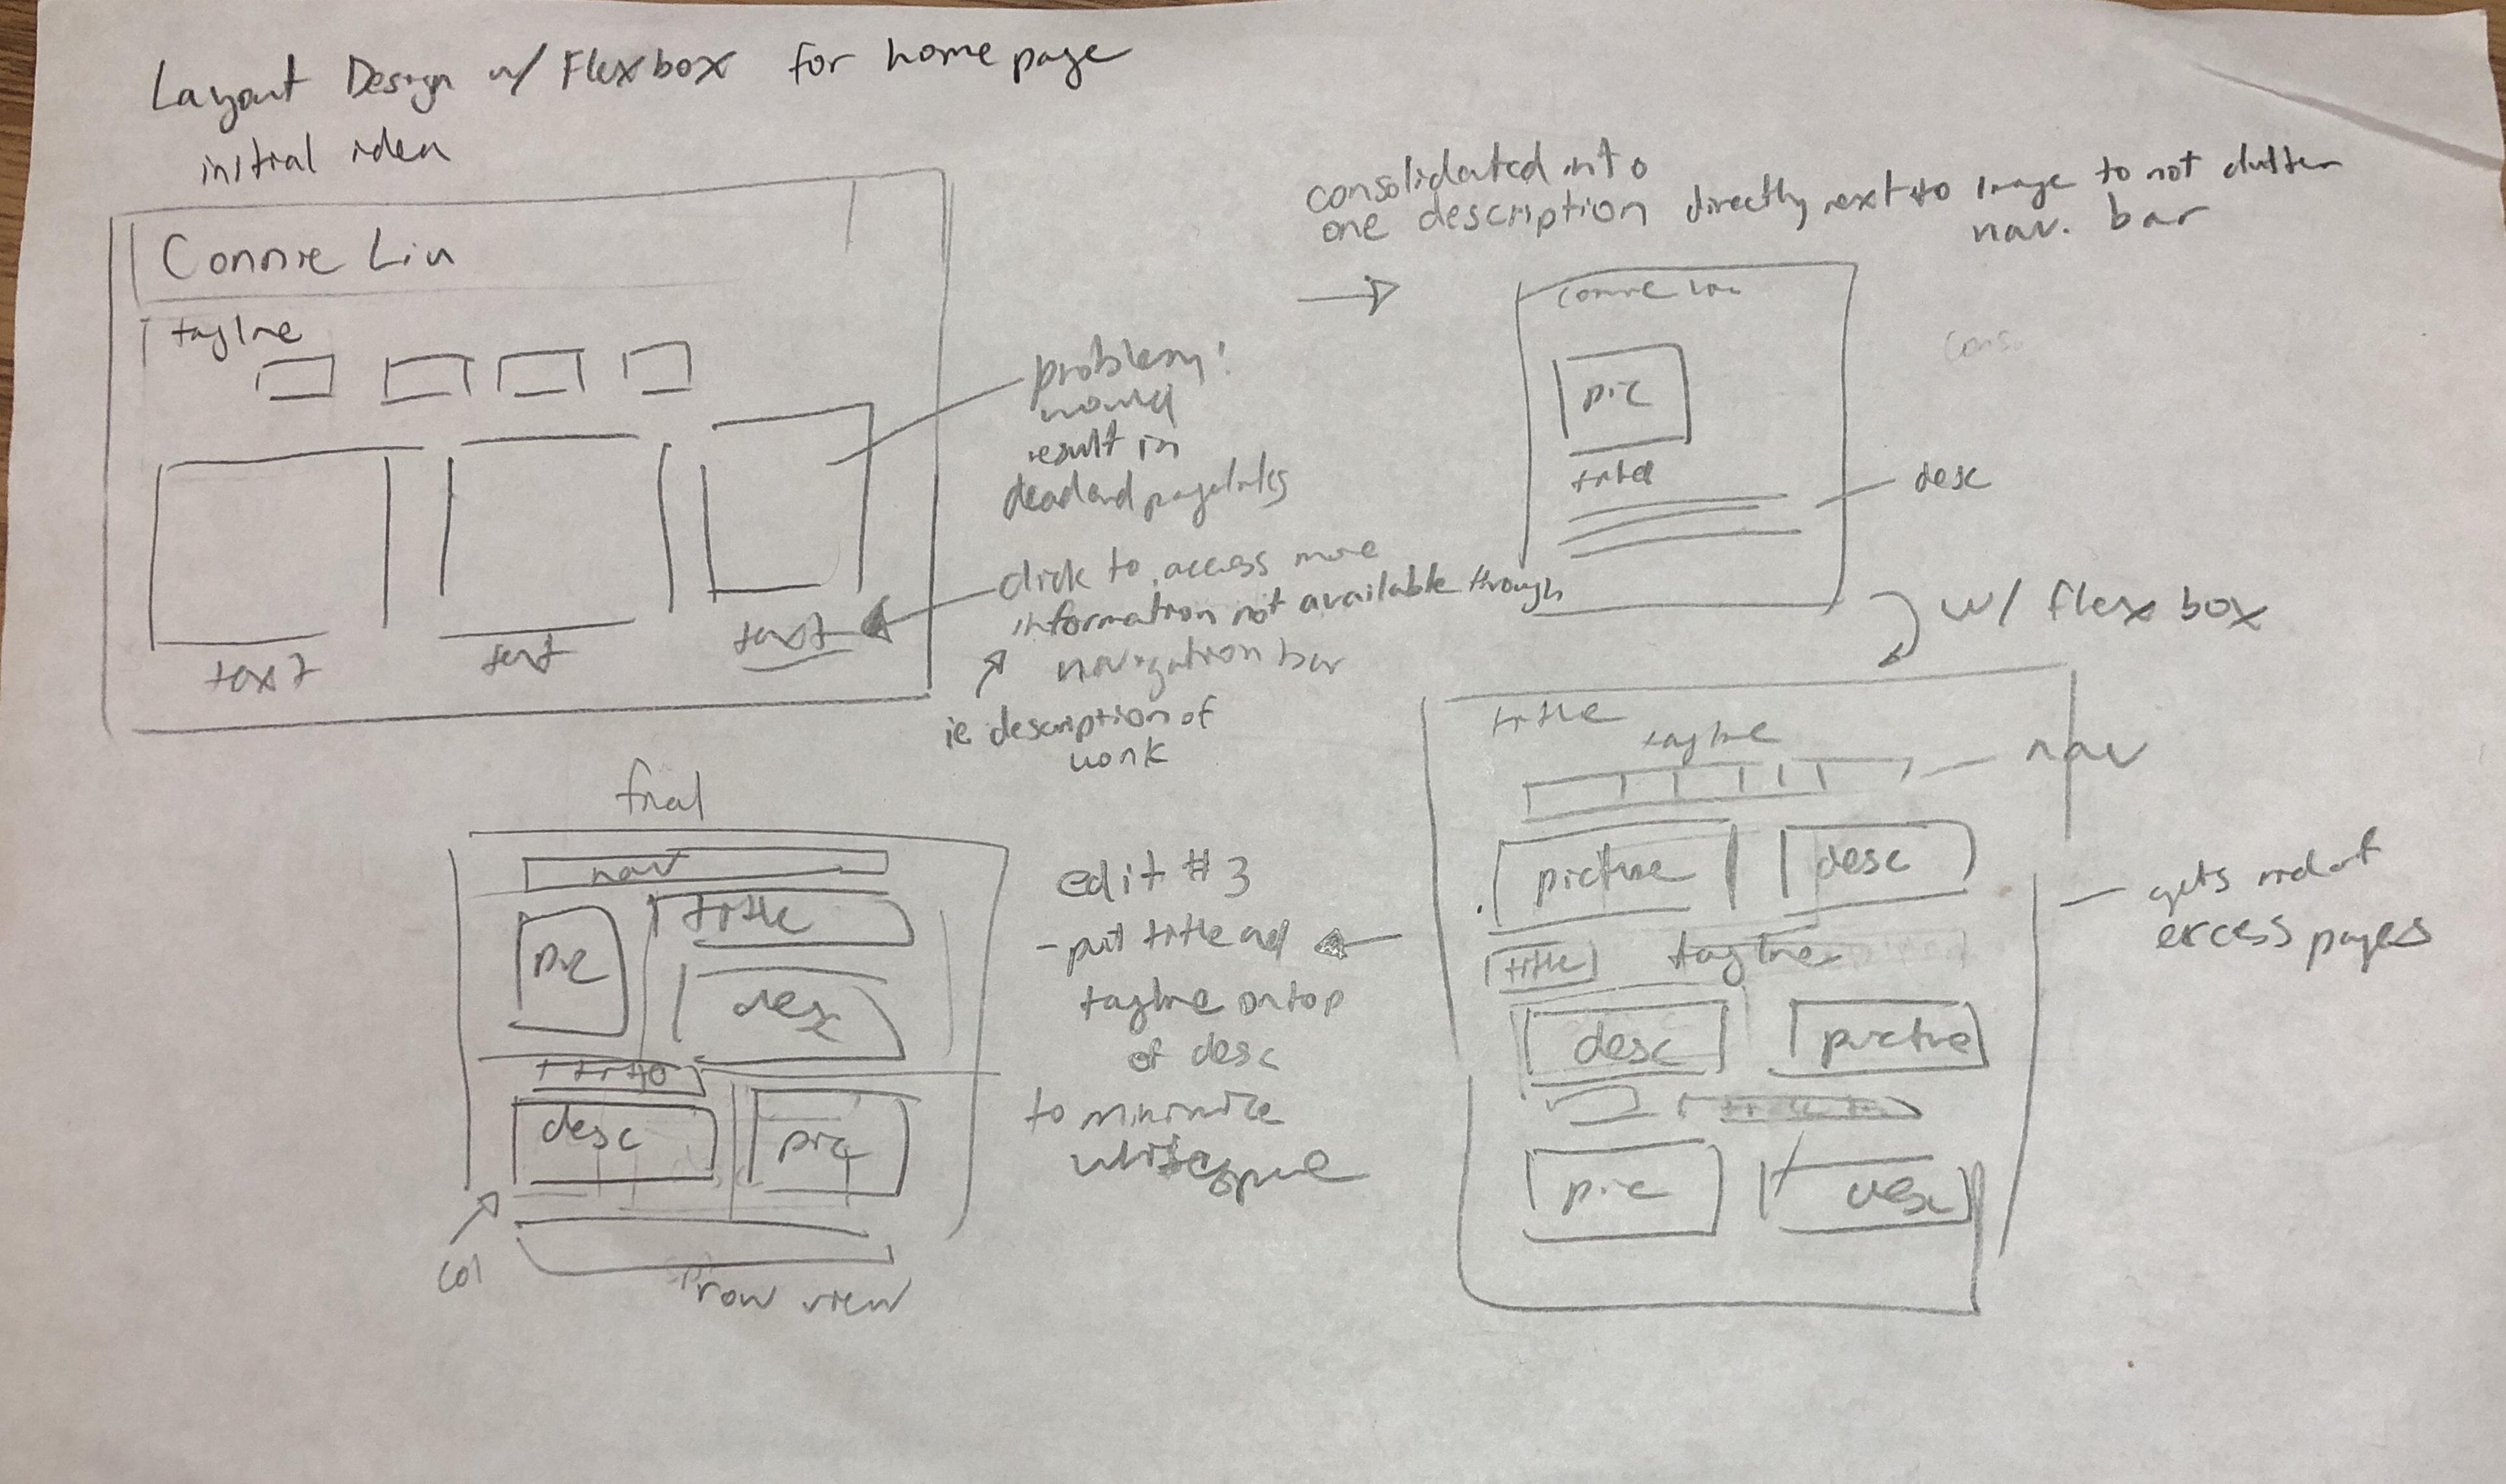 Layout Design w/ Flexbox for home page
initial idea
Connie Liu
tagline
text
text
text
problem:
would
result in
deadend pagelinks
click to access more
information not available through
navigation bar
ie description of
work
consolidated into
one description directly next to image to not clutter
nav. bar
connie liu
pic
title
desc
cons
w/ flex box
title
tagline
nav
picture
desc
title
tagline
desc
picture
pic
desc
gets rid of
excess pages
edit #3
- put title and
tagline on top
of desc
to minimize
whitespace
final
nav
pic
title
desc
title
desc
pic
col
row view